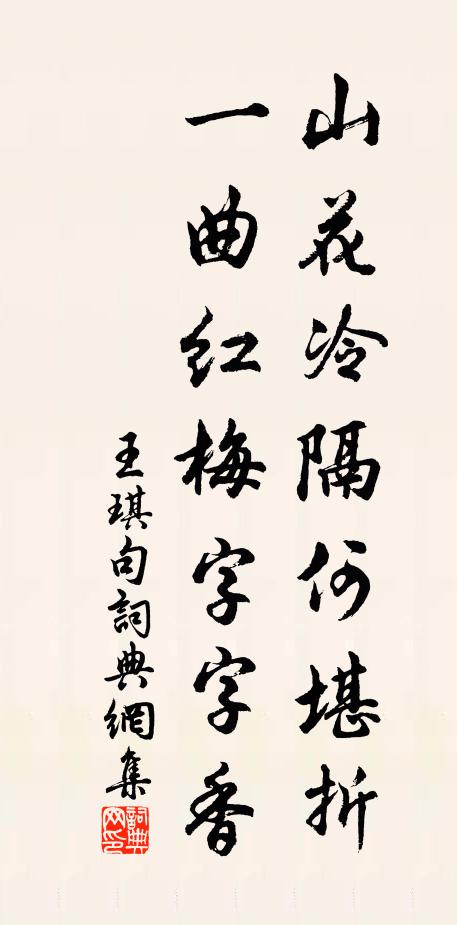 山花冷隔何堪折
一曲红梅字字香
王琪句詞典網集
詞典網印